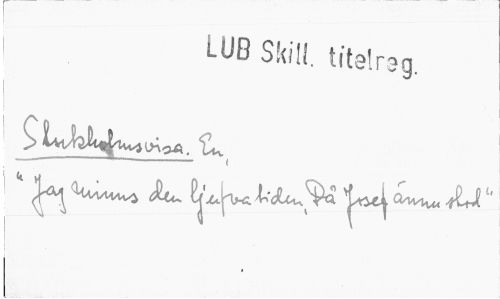 LUB Skill. titelreg.
Stockholmsvisa. En,
"Jag minns den ljufva tiden, Då Josef ännu stod"